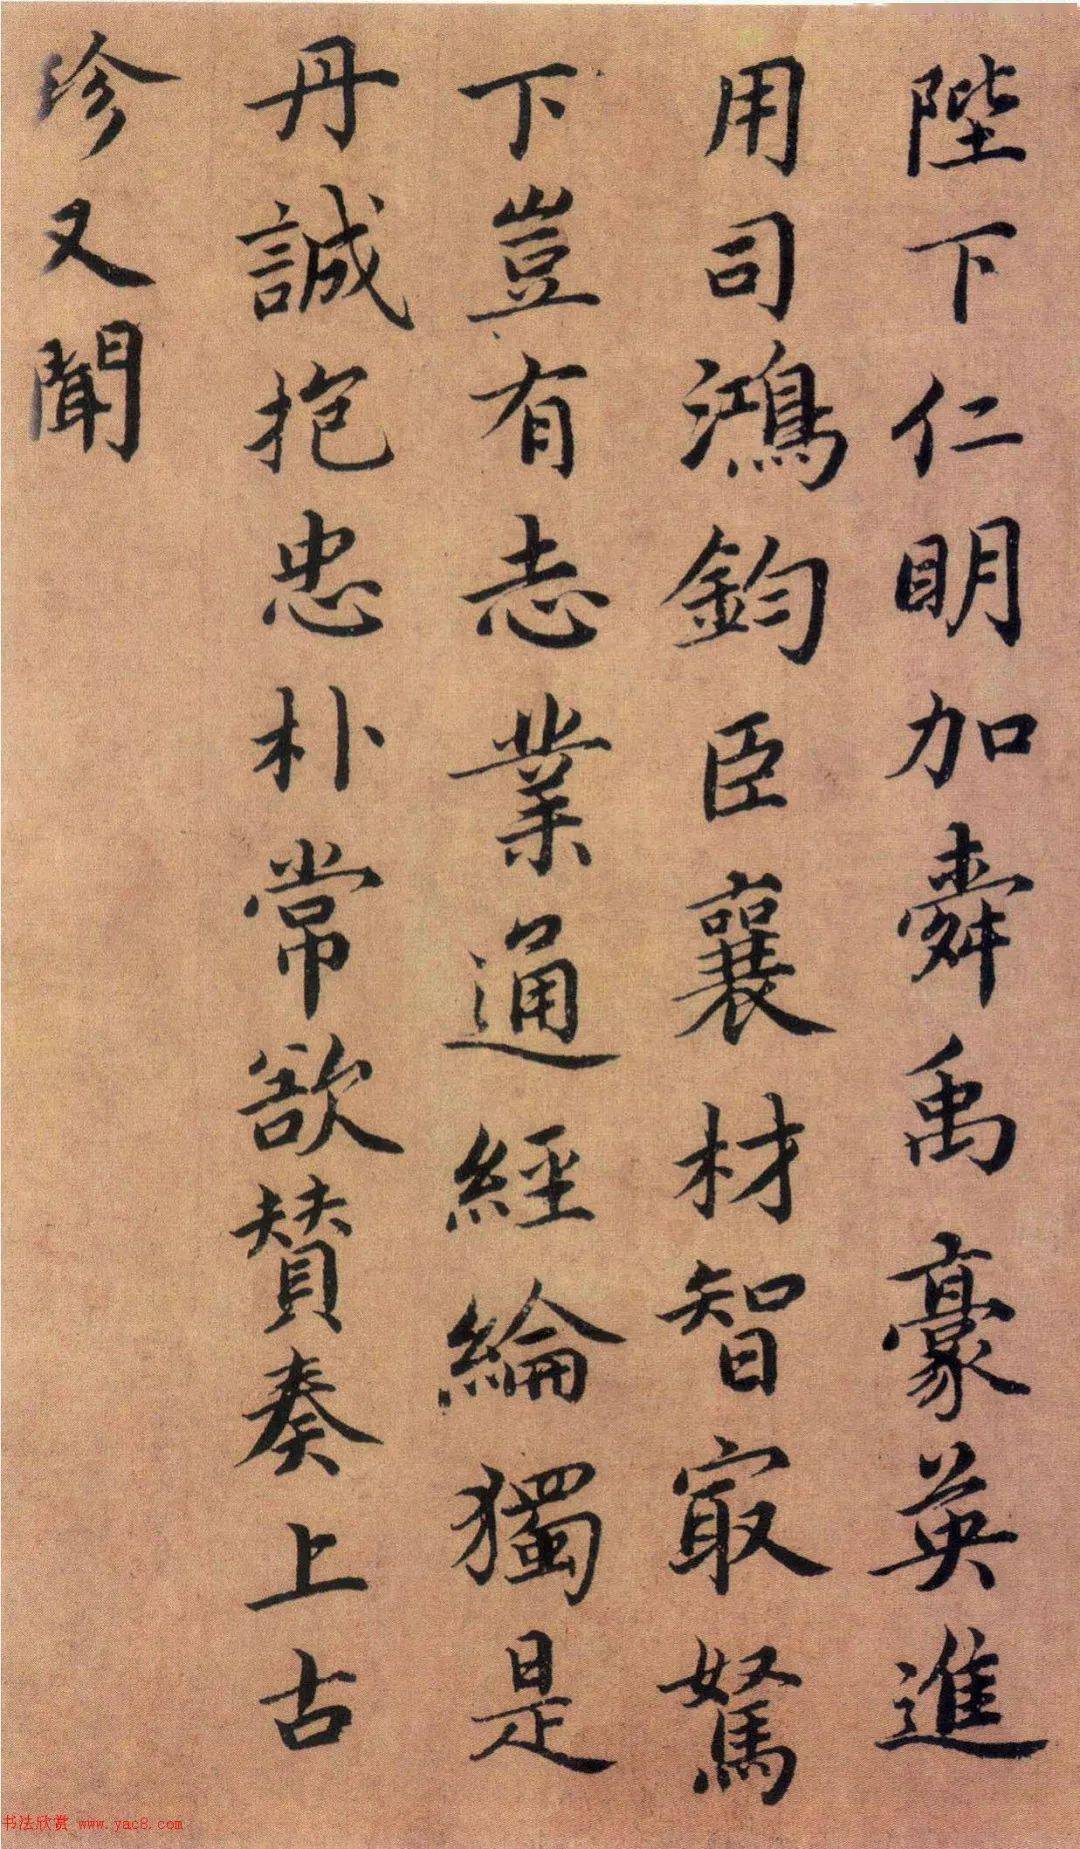 陛下仁明加舜禹豪英進
用司鴻鈞臣襄材智冣駑
下豈有志業通經綸獨是
丹誠抱忠朴常欲賛奏上古
珍又聞
书法欣赏 www.yac8.com